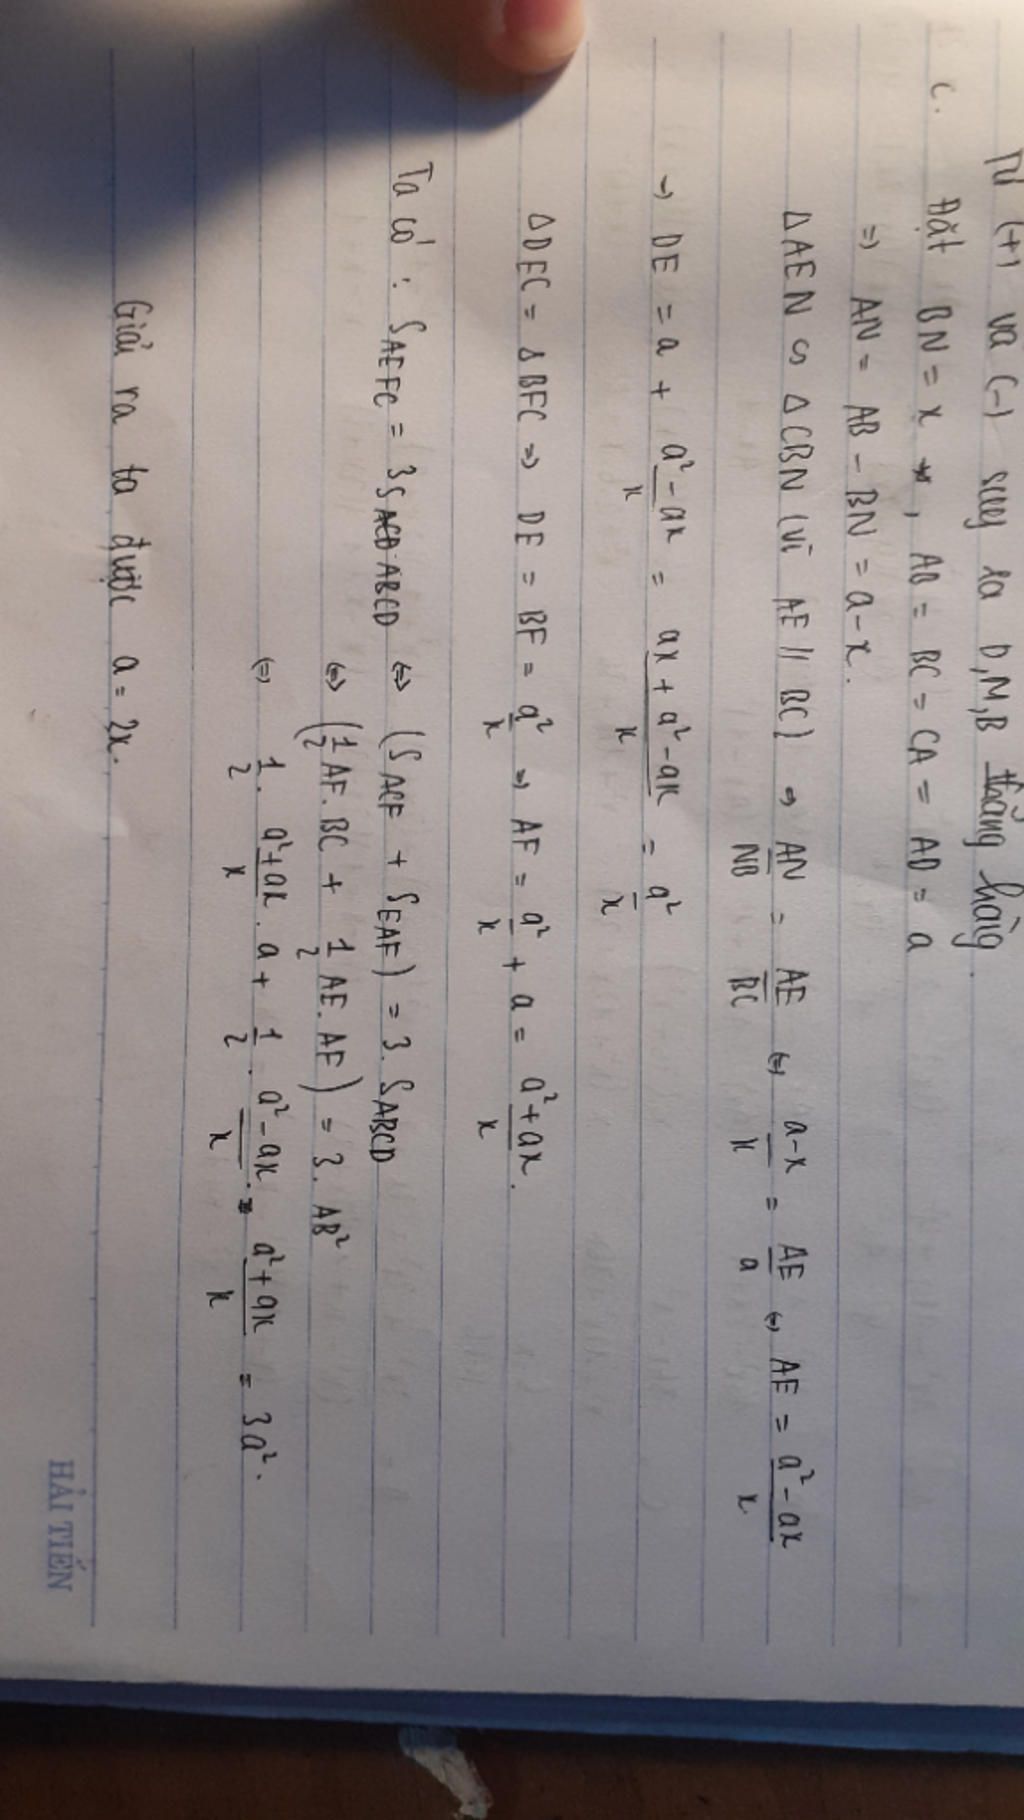 Từ (+) và (-) suy ra D, M, B thẳng hàng
c. Đặt BN = x, AB = BC = CA = AD = a
=> AN = AB - BN = a - x.
ΔAEN ∽ ΔCBN (vì AE // BC) => AN/NB = AE/BC <=> a-x/x = AE/a <=> AE = a²-ax/x
=> DE = a + a²-ax/x = ax+a²-ax/x = a²/x
ΔDEC = ΔBFC => DE = BF = a²/x => AF = a²/x + a = a²+ax/x.
Ta có: S_AEFC = 3S_ABCD <=> (S_ACF + S_EAF) = 3. S_ABCD
<=> (1/2 AF. BC + 1/2 AE. AF) = 3. AB²
<=> 1/2. a²+ax/x. a + 1/2. a²-ax/x. a²+ax/x = 3a².
Giải ra ta được a = 2x.
HẢI TIẾN